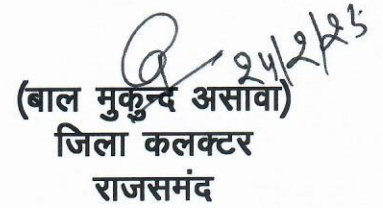 २५/2/25
(बाल मुकुन्द असावा)
जिला कलक्टर
राजसमंद